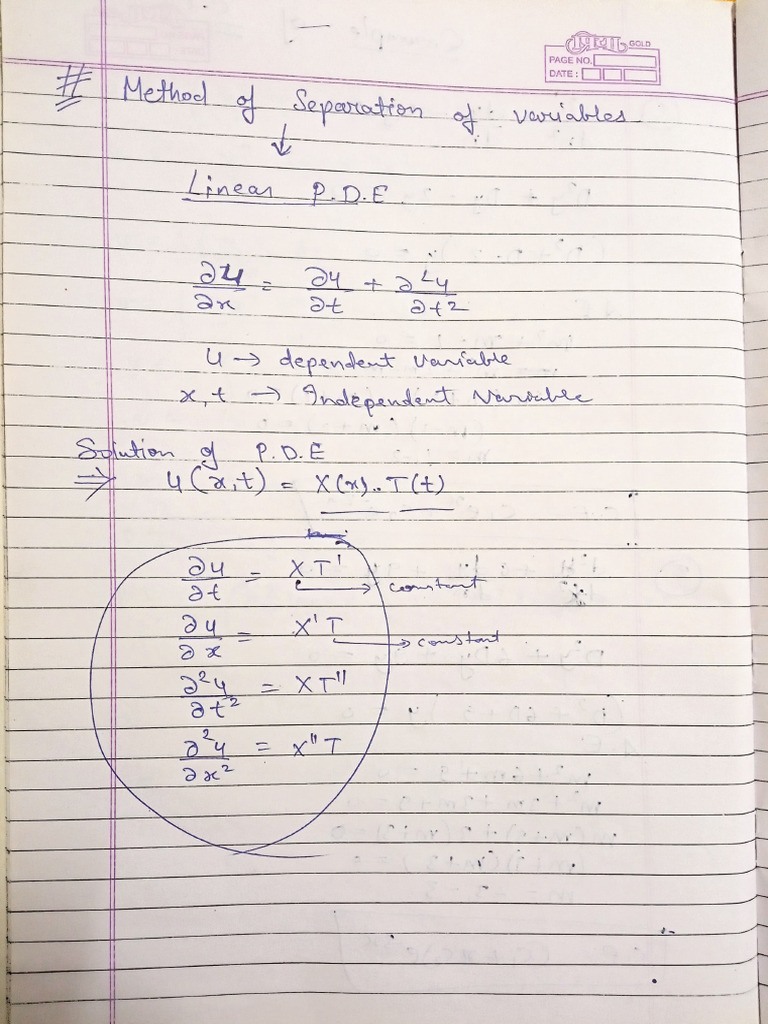 GOLD
PAGE NO.
DATE :
# Method of Separation of variables
↓
Linear P.D.E
∂u/∂x = ∂u/∂t + ∂²u/∂t²
u → dependent variable
x, t → Independent variable
Solution of P.D.E
⇒ u(x,t) = X(x)..T(t)
∂u/∂t = XT' → constant
∂u/∂x = X'T → constant
∂²u/∂t² = XT"
∂²u/∂x² = X"T